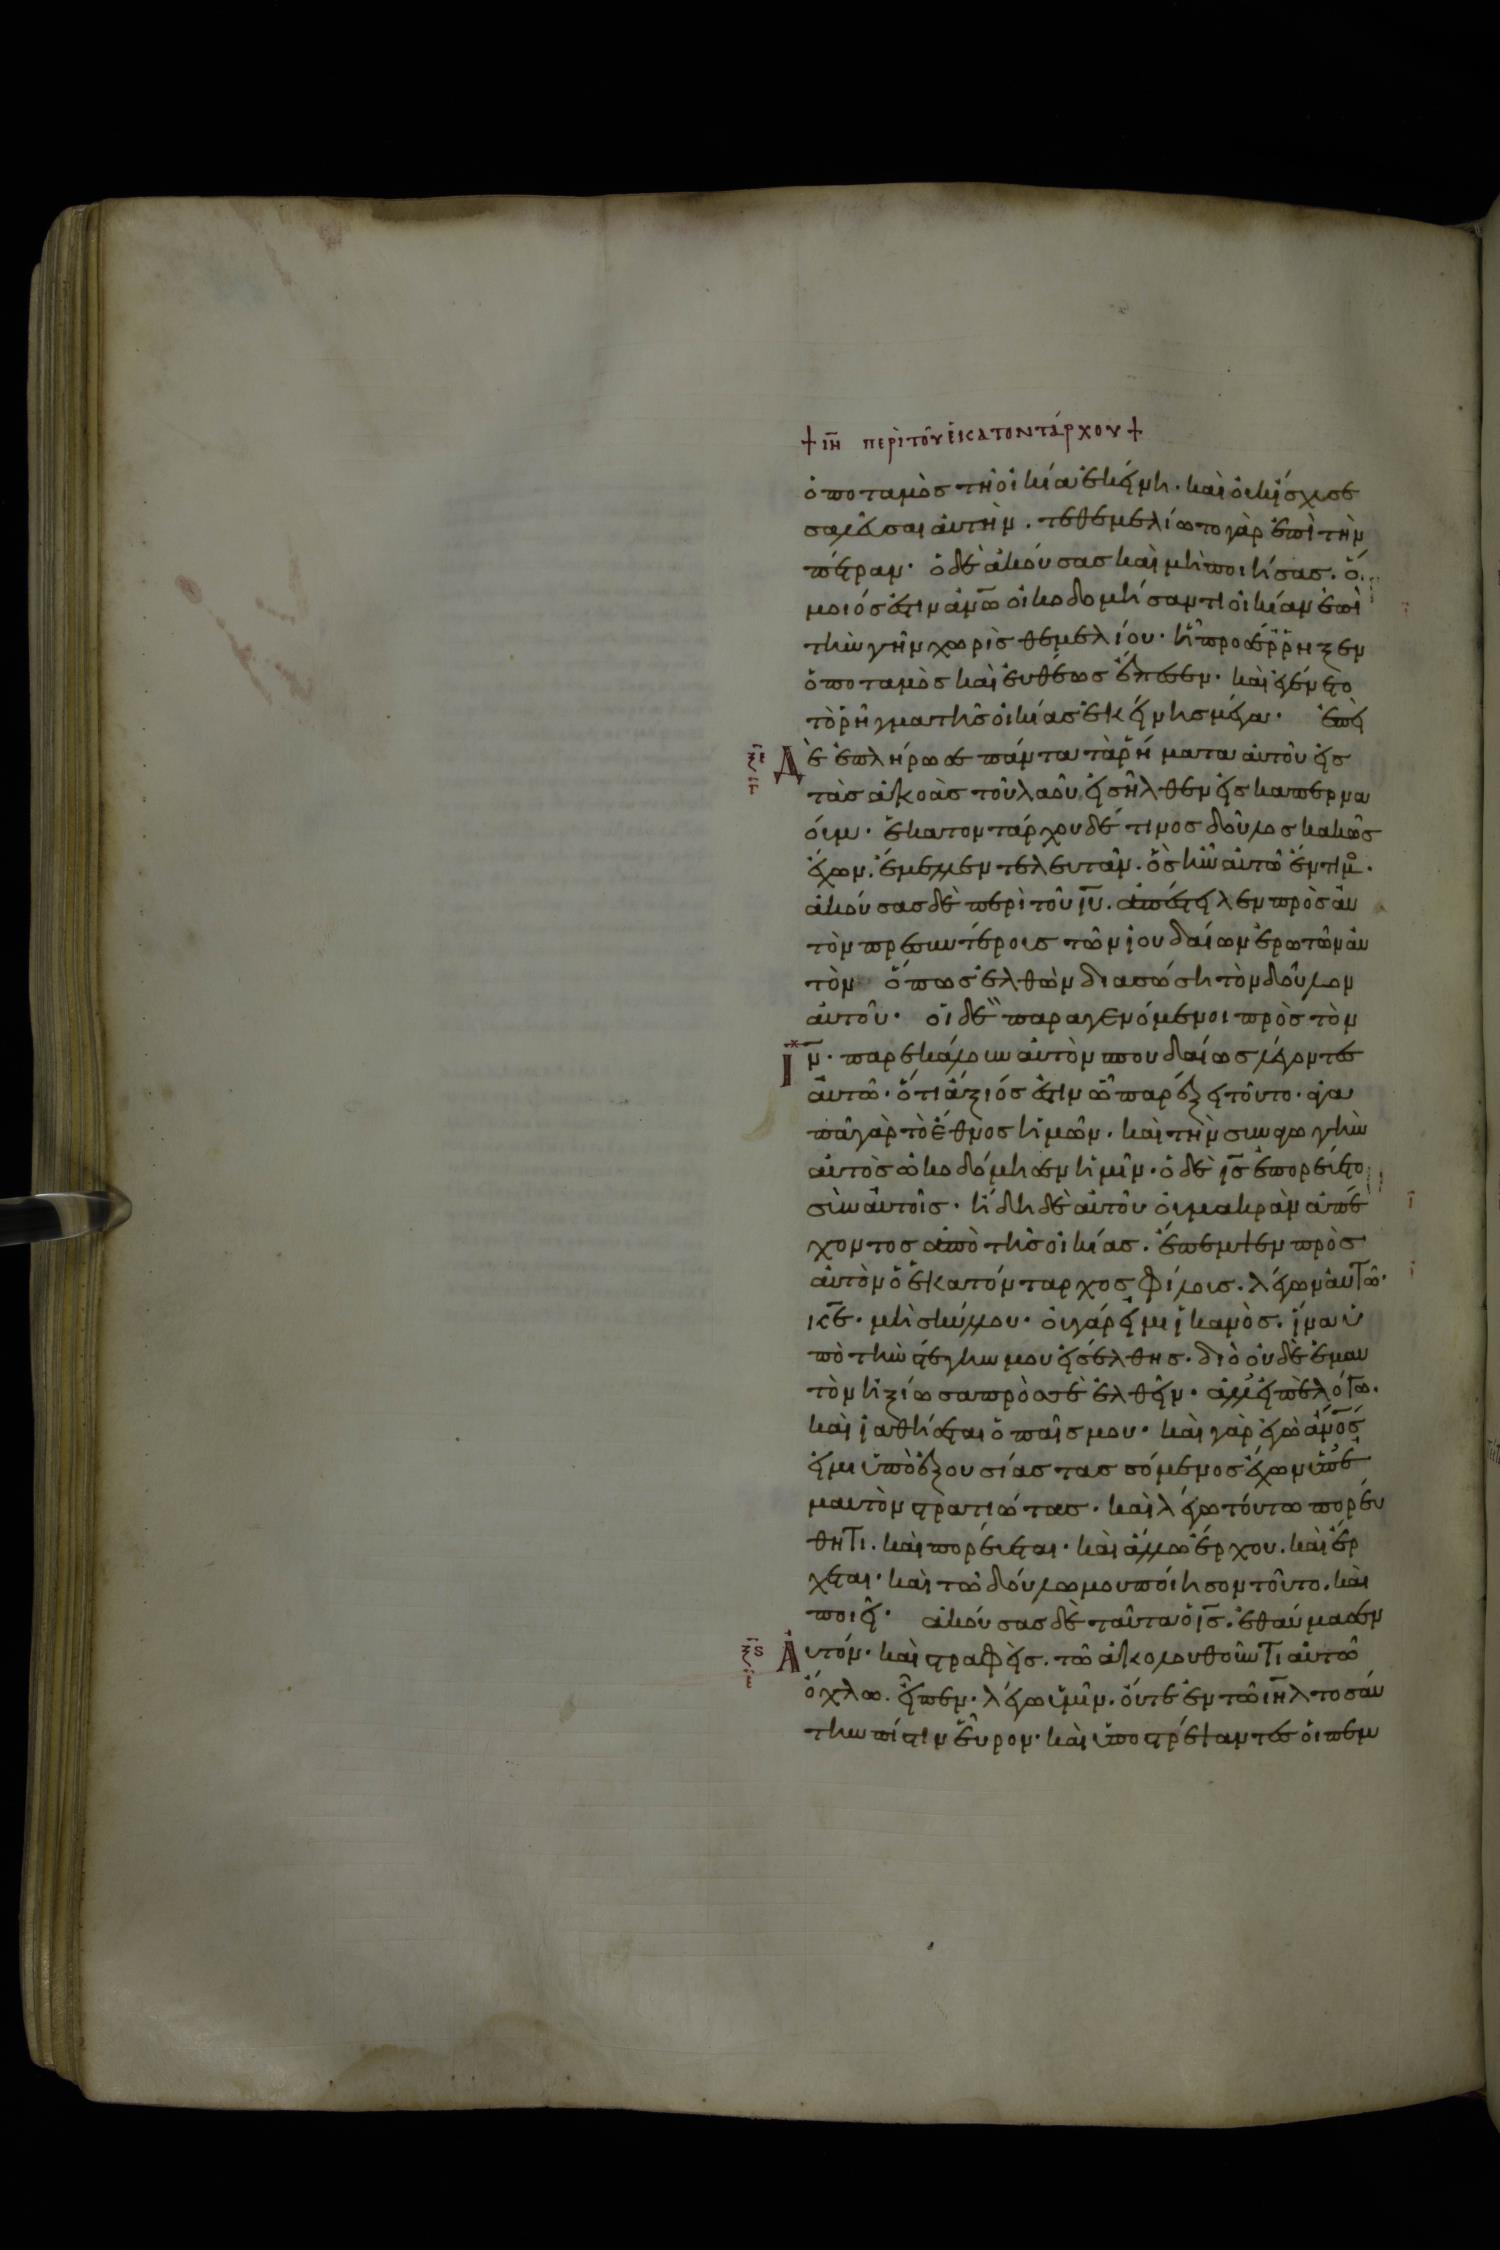 † ιη περὶ τοῦ ἑκατοντάρχου †
ὁ ποταμὸς τῆ οἰκία ἐκείνη· καὶ οὐκ ἴσχυσε
σαλεῦσαι αὐτὴν. τεθεμελίωτο γὰρ ἐπὶ τὴν
πέτραν· ὁ δὲ ἀκούσας καὶ μὴ ποιήσας. ὅ
μοιός ἐστιν ἀνω οἰκοδομήσαντι οἰκίαν ἐπὶ
τὴν γῆν χωρὶς θεμελίου· ἧ προσέρρηξεν
ὁ ποταμὸς καὶ εὐθέως ἔπεσεν· καὶ ἐγένετο
τὸ ρῆγμα τῆς οἰκίας ἐκείνης μέγα· ἐπεὶ
ξε Δὲ ἐπλήρωσε πάντα τὰ ρήματα αὐτοῦ εἰς
γ τὰς ἀκοὰς τοῦ λαοῦ, εἰσῆλθεν εἰς καπερνα
ούμ· ἑκατοντάρχου δέ τινος δοῦλος κακῶς
ἔχων. ἔμελλεν τελευτᾶν. ὃς ἦν αὐτῶ ἔντιμο·
ἀκούσας δὲ περὶ τοῦ ιυ. ἀπέστειλεν πρὸς αὐ
τὸν πρεσβυτέροις τῶν ἰουδαίων ἐρωτῶν αὐ
τὸν ὅπως ἐλθὼν διασώση τὸν δοῦλον
αὐτοῦ· οἱ δὲ παραγενόμενοι πρὸς τὸν
Ιν· παρεκάλουν αὐτὸν σπουδαίως λέγοντες
αὐτῶ· ὅτι ἄξιός ἐστιν ὧ παρέξει τοῦτο· ἀγα
πᾶ γὰρ τὸ ἔθνος ἡμῶν· καὶ τὴν συναγωγὴν
αὐτὸς ὠκοδόμησεν ἡμῖν· ὁ δὲ ις ἐπορεύετο
σὺν αὐτοῖς· ἤδη δὲ αὐτοῦ οὐ μακρὰν ἀπέ
χοντος ἀπὸ τῆς οἰκίας. ἔπεμψεν πρὸς
αὐτὸν ὁ ἑκατόνταρχος φίλους. λέγων αὐτῶ·
κε· μὴ σκύλλου· οὐ γάρ εἰμι ἱκανὸς. ἵνα ὑ
πὸ τὴν στέγην μου εἰσέλθης· διὸ οὐδὲ ἐμαυ
τὸν ἠξίωσα πρὸς σὲ ἐλθεῖν· ἀλλ' εἰπὲ λόγω.
καὶ ἰαθήσεται ὁ παῖς μου· καὶ γὰρ ἐγὼ ἄνος
εἰμι ὑπὸ ἐξουσίας τασσόμενος ἔχων ὑπ' ἐ
μαυτὸν στρατιώτας· καὶ λέγω τούτω πορεύ
θητι. καὶ πορεύεται· καὶ ἄλλω ἔρχου. καὶ ἔρ
χεται· καὶ τῶ δούλω μου ποίησον τοῦτο. καὶ
ποιεῖ· ἀκούσας δὲ ταῦτα ὁ ις. ἐθαύμασεν
ξϛ Αὐτόν· καὶ στραφεὶς. τῶ ἀκολουθοῦντι αὐτῶ
ὄχλω. εἶπεν· λέγω ὑμῖν. οὔτε ἐν τῶ ιηλ τοσαύ
την πίστιν εὗρον· καὶ ὑποστρέψαντες οἱ πεμ